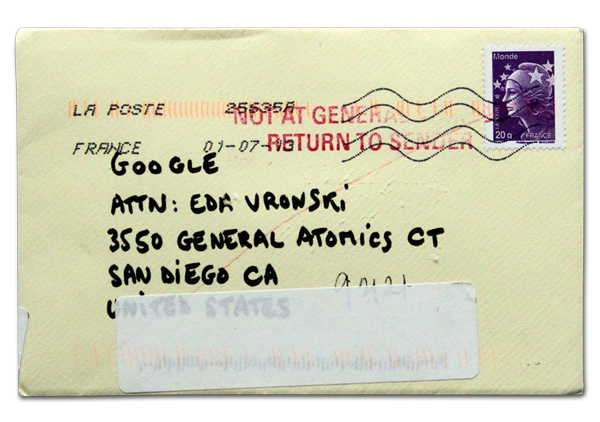 Monde
LA POSTE
NOT AT GENERAL
FRANCE 01-07-13
RETURN TO SENDER
20g FRANCE
GOOGLE
ATTN: EDA VRONSKI
3550 GENERAL ATOMICS CT
SAN DIEGO CA
UNITED STATES